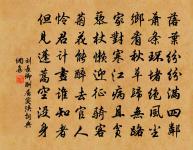 落葉紛紛滿四鄰
蕭條環堵絕風塵
鄉看秋草歸無路
家對寒江病且貧
藜杖懶迎征騎客
菊花能醉去官人
憐君計畫誰知者
但見蓬蒿空沒身
劉長卿酬屈突陝詞典
網